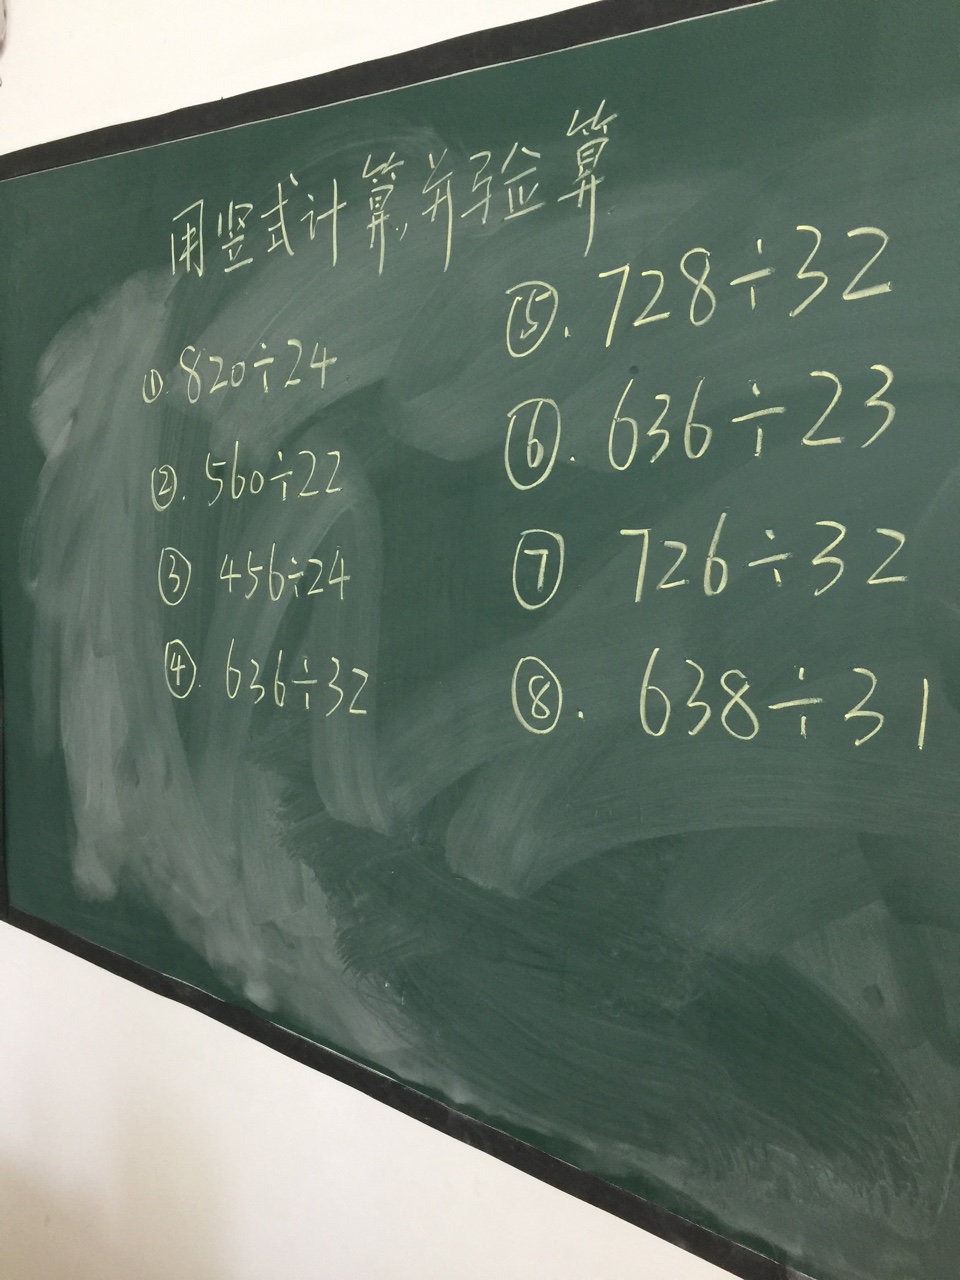 用竖式计算,并验算
①820÷24
②.560÷22
③ 456÷24
④.636÷32
⑤.728÷32
⑥.636÷23
⑦ 726÷32
⑧.638÷31